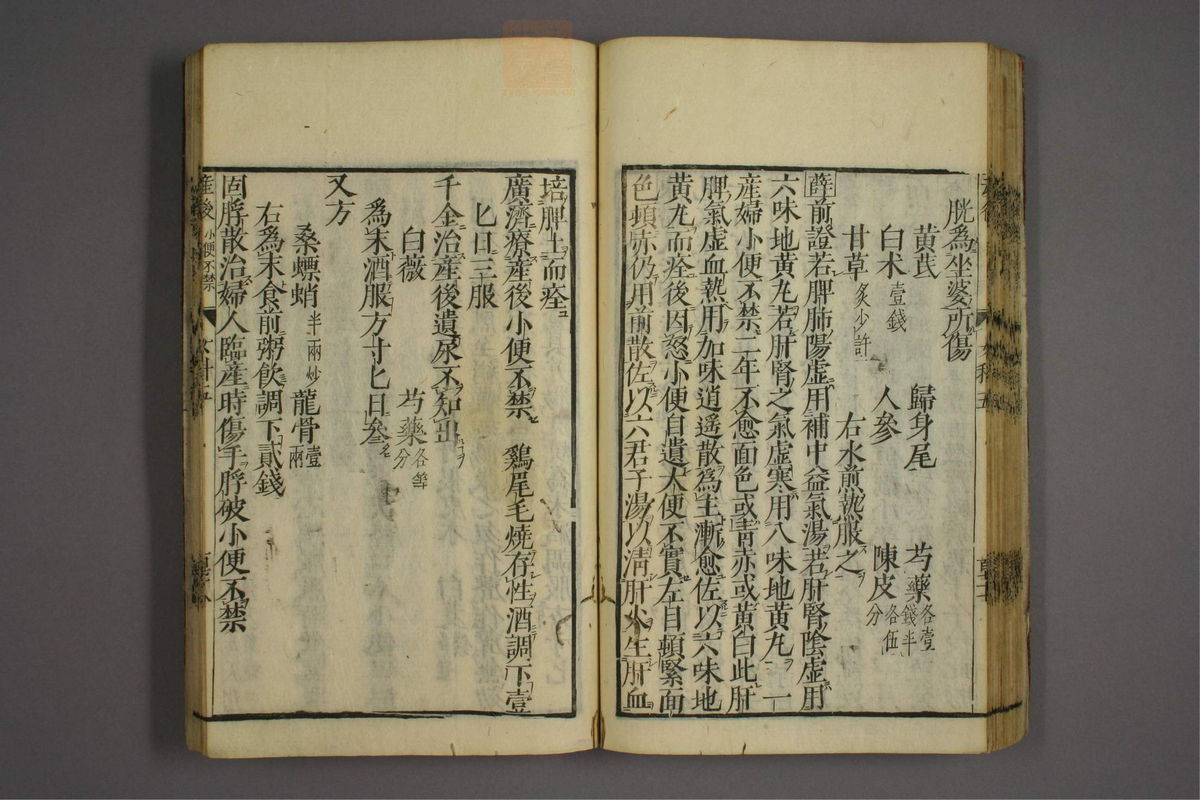 胱爲坐婆所傷
黄茋 歸身尾 芍藥各壹錢半
白朮壹錢 人參 陳皮各伍分
甘草炙少許 右水煎熱服之
薛前證若脾肺陽虚用補中益氣湯若肝腎陰虚用
六味地黄丸若肝腎之氣虚寒用八味地黄丸一
産婦小便不禁二年不愈面色或青赤或黄白此肝
脾氣虚血熱用加味逍遥散爲主漸愈佐以六味地
黄丸而痊後因怒小便自遺大便不實左目頓緊面
色頓赤仍用前散佐以六君子湯以淸肝火生肝血
培脾土而痊
廣濟療産後小便不禁 鷄尾毛燒存性酒調下壹
匕日三服
千金治産後遺尿不知出
白薇 芍藥各等分
爲末酒服方寸匕日參
又方
桑螵蛸半兩炒 龍骨壹兩
右爲末食前粥飲調下貳錢
固脬散治婦人臨産時傷手脬破小便不禁
産後 小便不禁